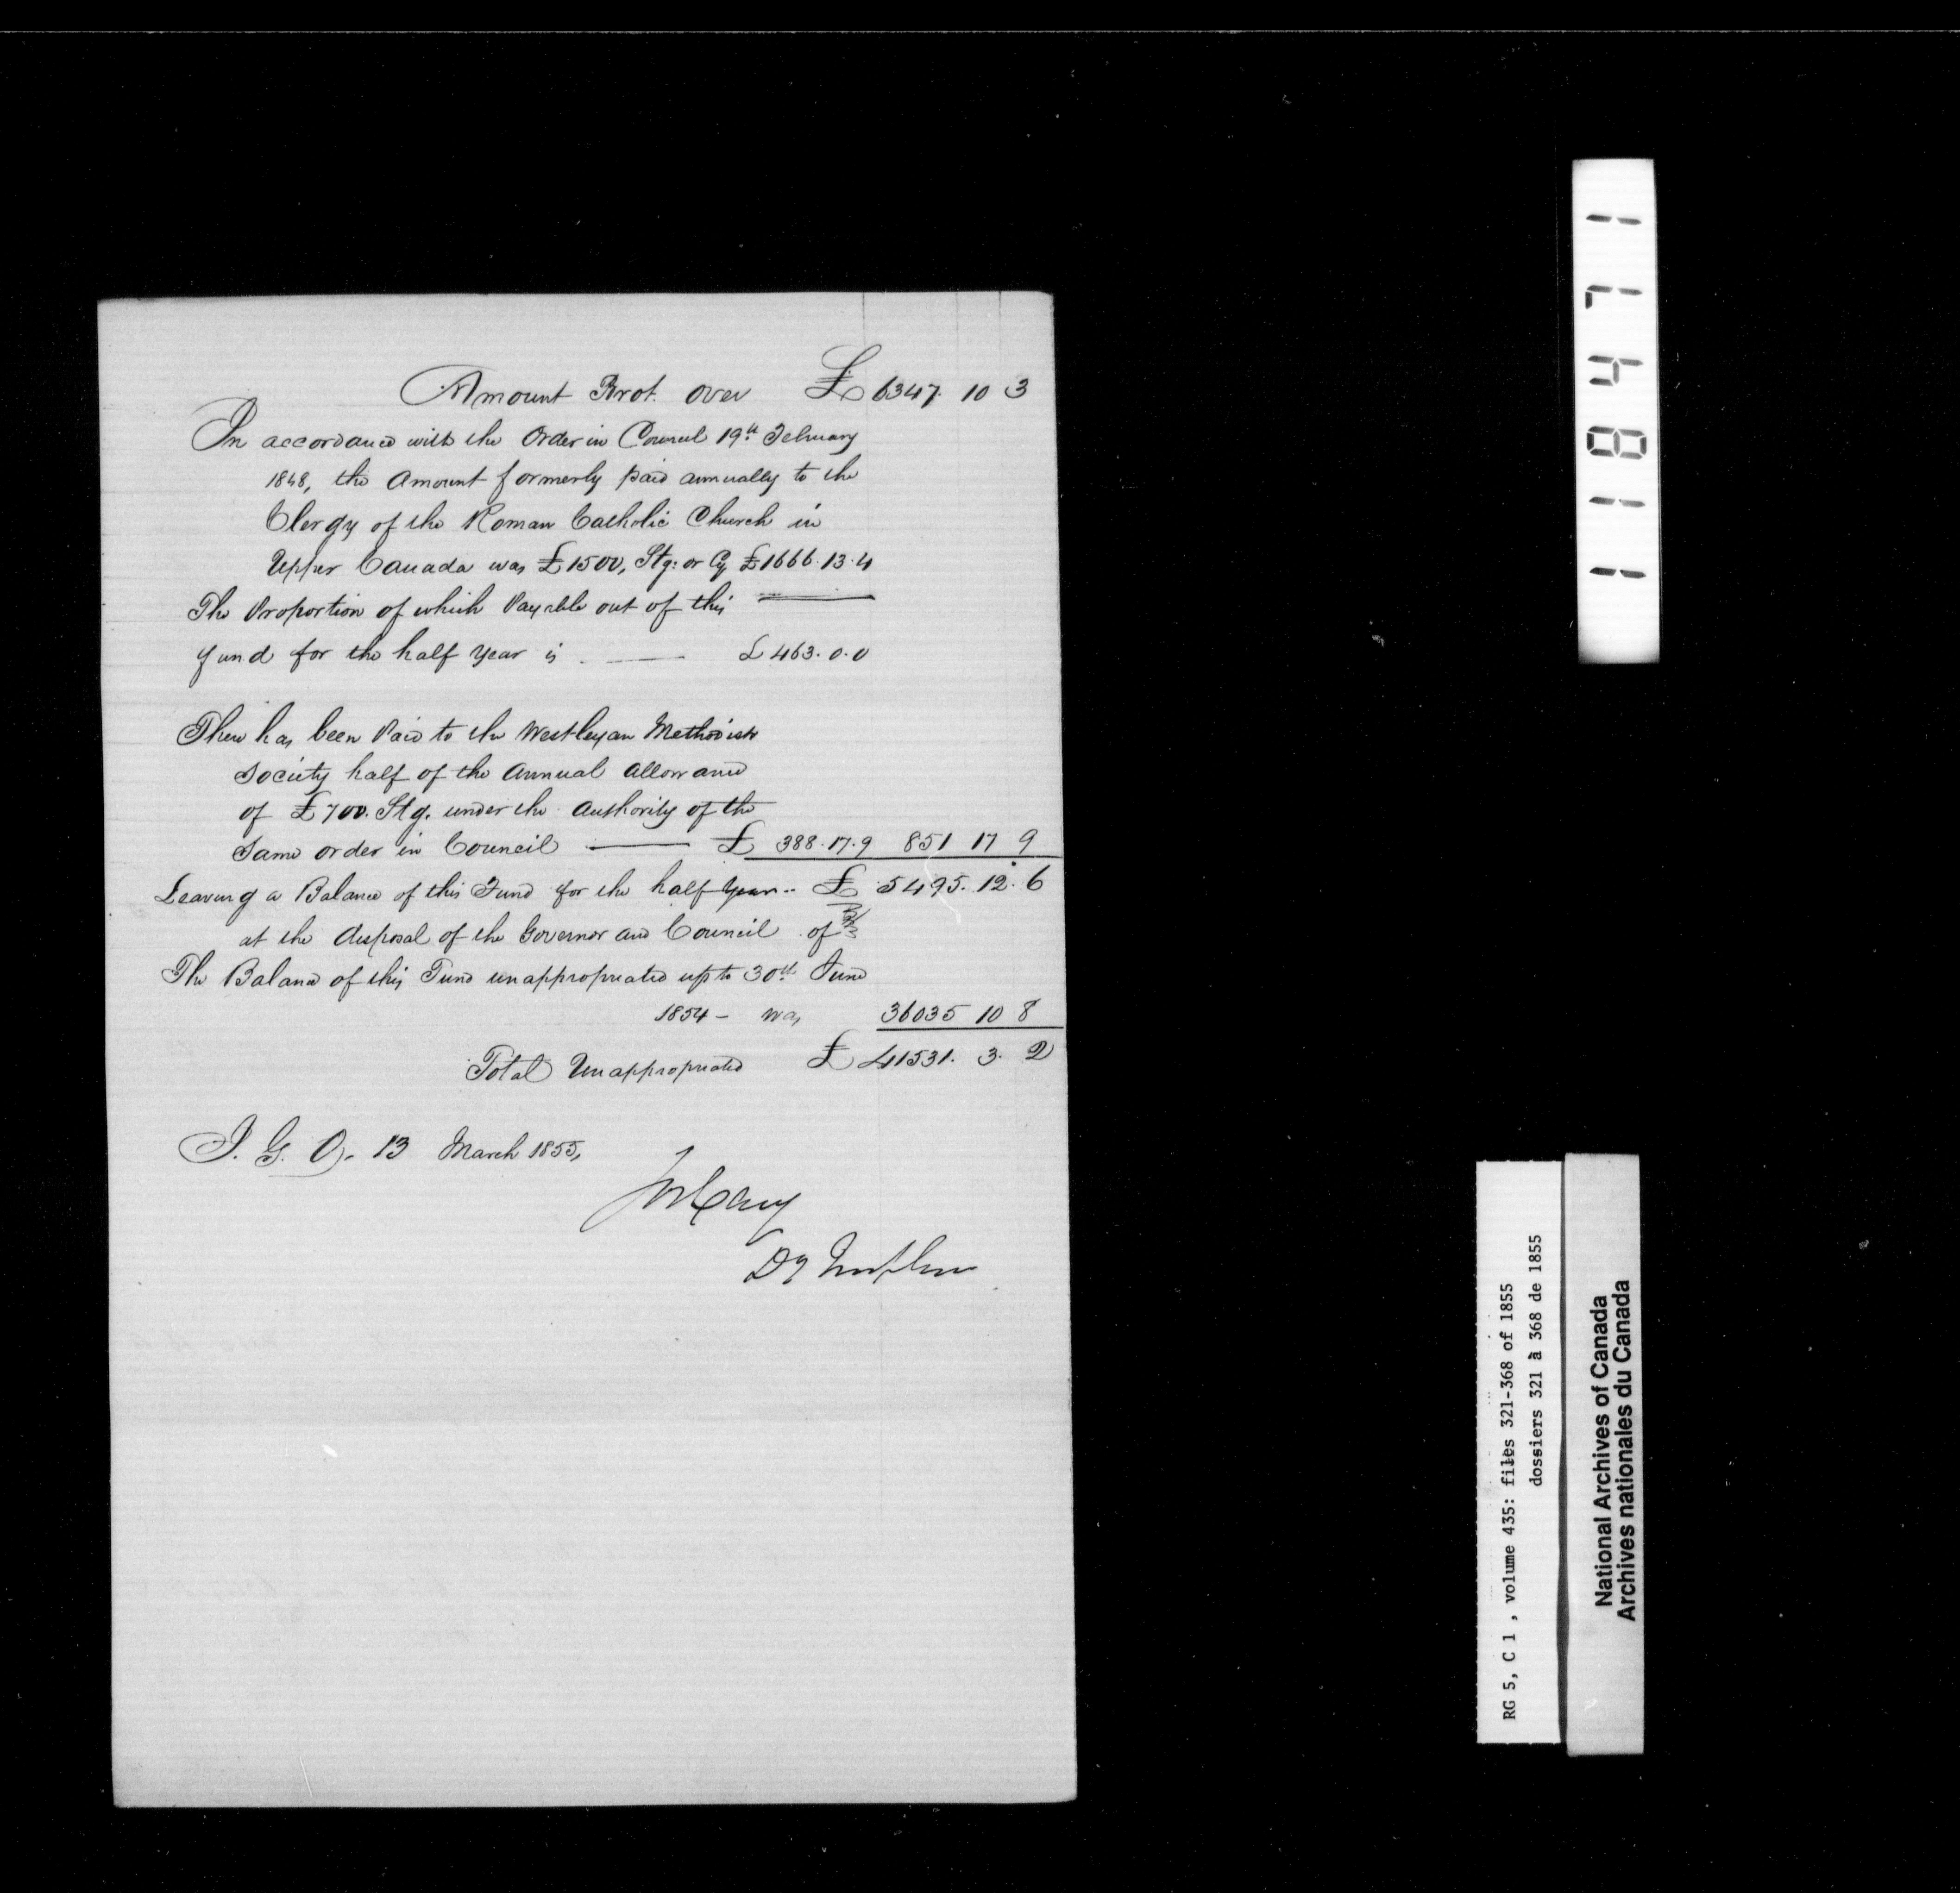 Amount Brot. over £ 6347. 10 3
In accordance with the Order in Council 19th February
1848, the Amount formerly paid annually to the
Clergy of the Roman Catholic Church in
Upper Canada was £1500, Stg: or Cy £1666.13.4
The Proportion of which Payable out of this
fund for the half Year is £463.0.0
There has been Paid to the Westleyan Methodist
Society half of the Annual Allowance
of £700. Stg. under the Authority of the
Same order in Council £ 388.17.9 851 17 9
Leaving a Balance of this Fund for the half Year .. £ 5495. 12. 6
at the disposal of the Governor and Council of
The Balance of this Fund unappropriated up to 30th June
1854 - was 36035 10 8
Total Unappropriated £ 41531. 3. 2
I. G. O. 13 March 1855,
Jos Cary
Dy
118471
RG 5, C 1 , volume 435: files 321-368 of 1855
dossiers 321 à 368 de 1855
National Archives of Canada
Archives nationales du Canada